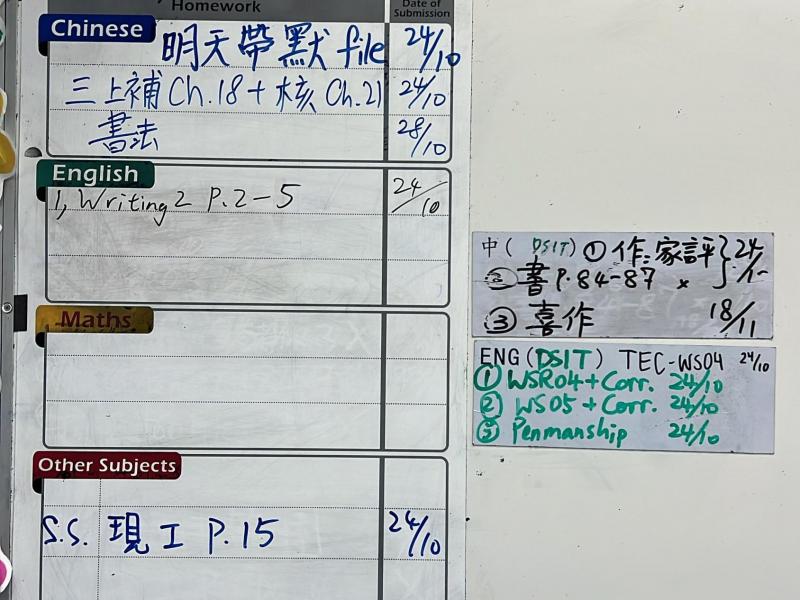 Homework
Date of Submission
Chinese
明天帶默 file 24/10
三上補 Ch.18 + 核 Ch.21 24/10
書法 28/10
English
1, Writing 2 P.2-5 24/10
Maths
Other Subjects
S.S. 現工 P.15 24/10
中 ( DSIT ) ① 作: 家評 } 24/
② 書 P.84-87 x
③ 喜作 18/11
ENG (DSIT) TEC-WS04 24/10
① WSR04 + Corr. 24/10
② WS05 + Corr. 24/10
③ Penmanship 24/10